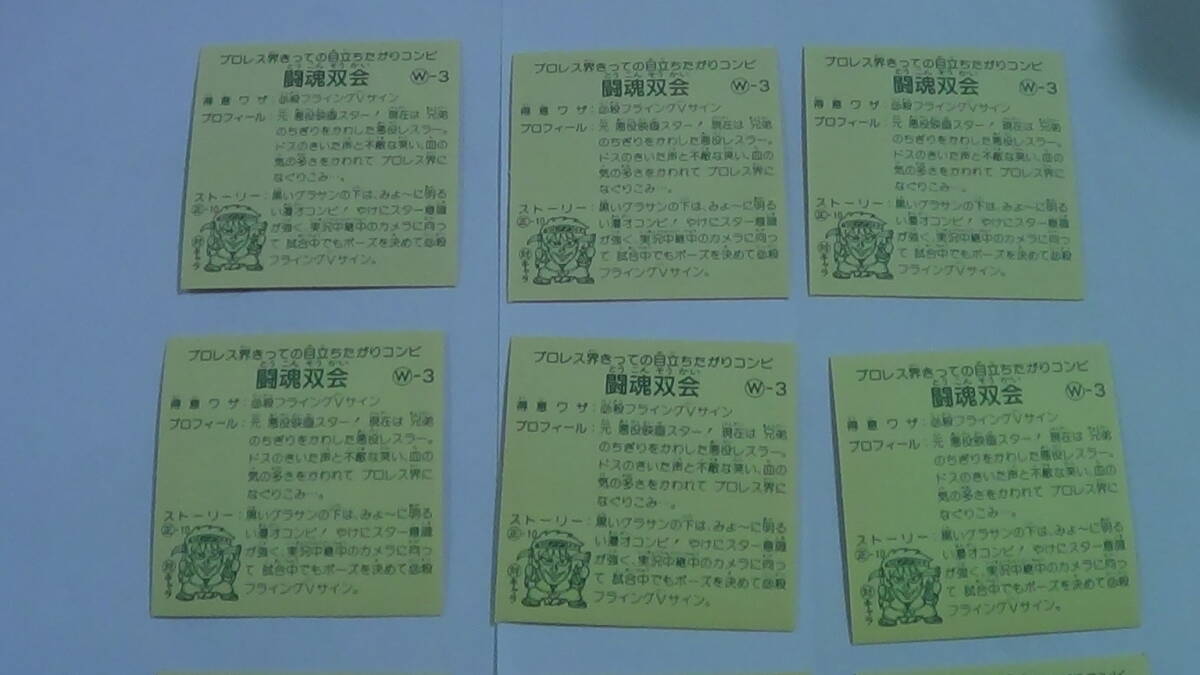 プロレス界きっての目立ちたがりコンビ
とうこんそうかい
闘魂双会 Ⓦ-3
得意ワザ:必殺フライングVサイン
プロフィール:元 悪役映画スター! 現在は 兄弟
のちぎりをかわした悪役レスラー。
ドスのきいた声と不敵な笑い、血の
気の多さをかわれて プロレス界に
なぐりこみ…。
ストーリー:黒いグラサンの下は、みょ〜に明る
い コンビ! やけにスター意識
が強く、実況中継中のカメラに向っ
て 試合中でもポーズを決めて必殺
フライングVサイン。
正-10
対キャラ
プロレス界きっての目立ちたがりコンビ
とうこんそうかい
闘魂双会 Ⓦ-3
得意ワザ:必殺フライングVサイン
プロフィール:元 悪役映画スター! 現在は 兄弟
のちぎりをかわした悪役レスラー。
ドスのきいた声と不敵な笑い、血の
気の多さをかわれて プロレス界に
なぐりこみ…。
ストーリー:黒いグラサンの下は、みょ〜に明る
い コンビ! やけにスター意識
が強く、実況中継中のカメラに向っ
て 試合中でもポーズを決めて必殺
フライングVサイン。
正-10
対キャラ
プロレス界きっての目立ちたがりコンビ
とうこんそうかい
闘魂双会 Ⓦ-3
得意ワザ:必殺フライングVサイン
プロフィール:元 悪役映画スター! 現在は 兄弟
のちぎりをかわした悪役レスラー。
ドスのきいた声と不敵な笑い、血の
気の多さをかわれて プロレス界に
なぐりこみ…。
ストーリー:黒いグラサンの下は、みょ〜に明る
い コンビ! やけにスター意識
が強く、実況中継中のカメラに向っ
て 試合中でもポーズを決めて必殺
フライングVサイン。
正-10
対キャラ
プロレス界きっての目立ちたがりコンビ
とうこんそうかい
闘魂双会 Ⓦ-3
得意ワザ:必殺フライングVサイン
プロフィール:元 悪役映画スター! 現在は 兄弟
のちぎりをかわした悪役レスラー。
ドスのきいた声と不敵な笑い、血の
気の多さをかわれて プロレス界に
なぐりこみ…。
ストーリー:黒いグラサンの下は、みょ〜に明る
い コンビ! やけにスター意識
が強く、実況中継中のカメラに向っ
て 試合中でもポーズを決めて必殺
フライングVサイン。
正-10
対キャラ
プロレス界きっての目立ちたがりコンビ
とうこんそうかい
闘魂双会 Ⓦ-3
得意ワザ:必殺フライングVサイン
プロフィール:元 悪役映画スター! 現在は 兄弟
のちぎりをかわした悪役レスラー。
ドスのきいた声と不敵な笑い、血の
気の多さをかわれて プロレス界に
なぐりこみ…。
ストーリー:黒いグラサンの下は、みょ〜に明る
い コンビ! やけにスター意識
が強く、実況中継中のカメラに向っ
て 試合中でもポーズを決めて必殺
フライングVサイン。
正-10
対キャラ
プロレス界きっての目立ちたがりコンビ
とうこんそうかい
闘魂双会 Ⓦ-3
得意ワザ:必殺フライングVサイン
プロフィール:元 悪役映画スター! 現在は 兄弟
のちぎりをかわした悪役レスラー。
ドスのきいた声と不敵な笑い、血の
気の多さをかわれて プロレス界に
なぐりこみ…。
ストーリー:黒いグラサンの下は、みょ〜に明る
い コンビ! やけにスター意識
が強く、実況中継中のカメラに向っ
て 試合中でもポーズを決めて必殺
フライングVサイン。
正-10
対キャラ